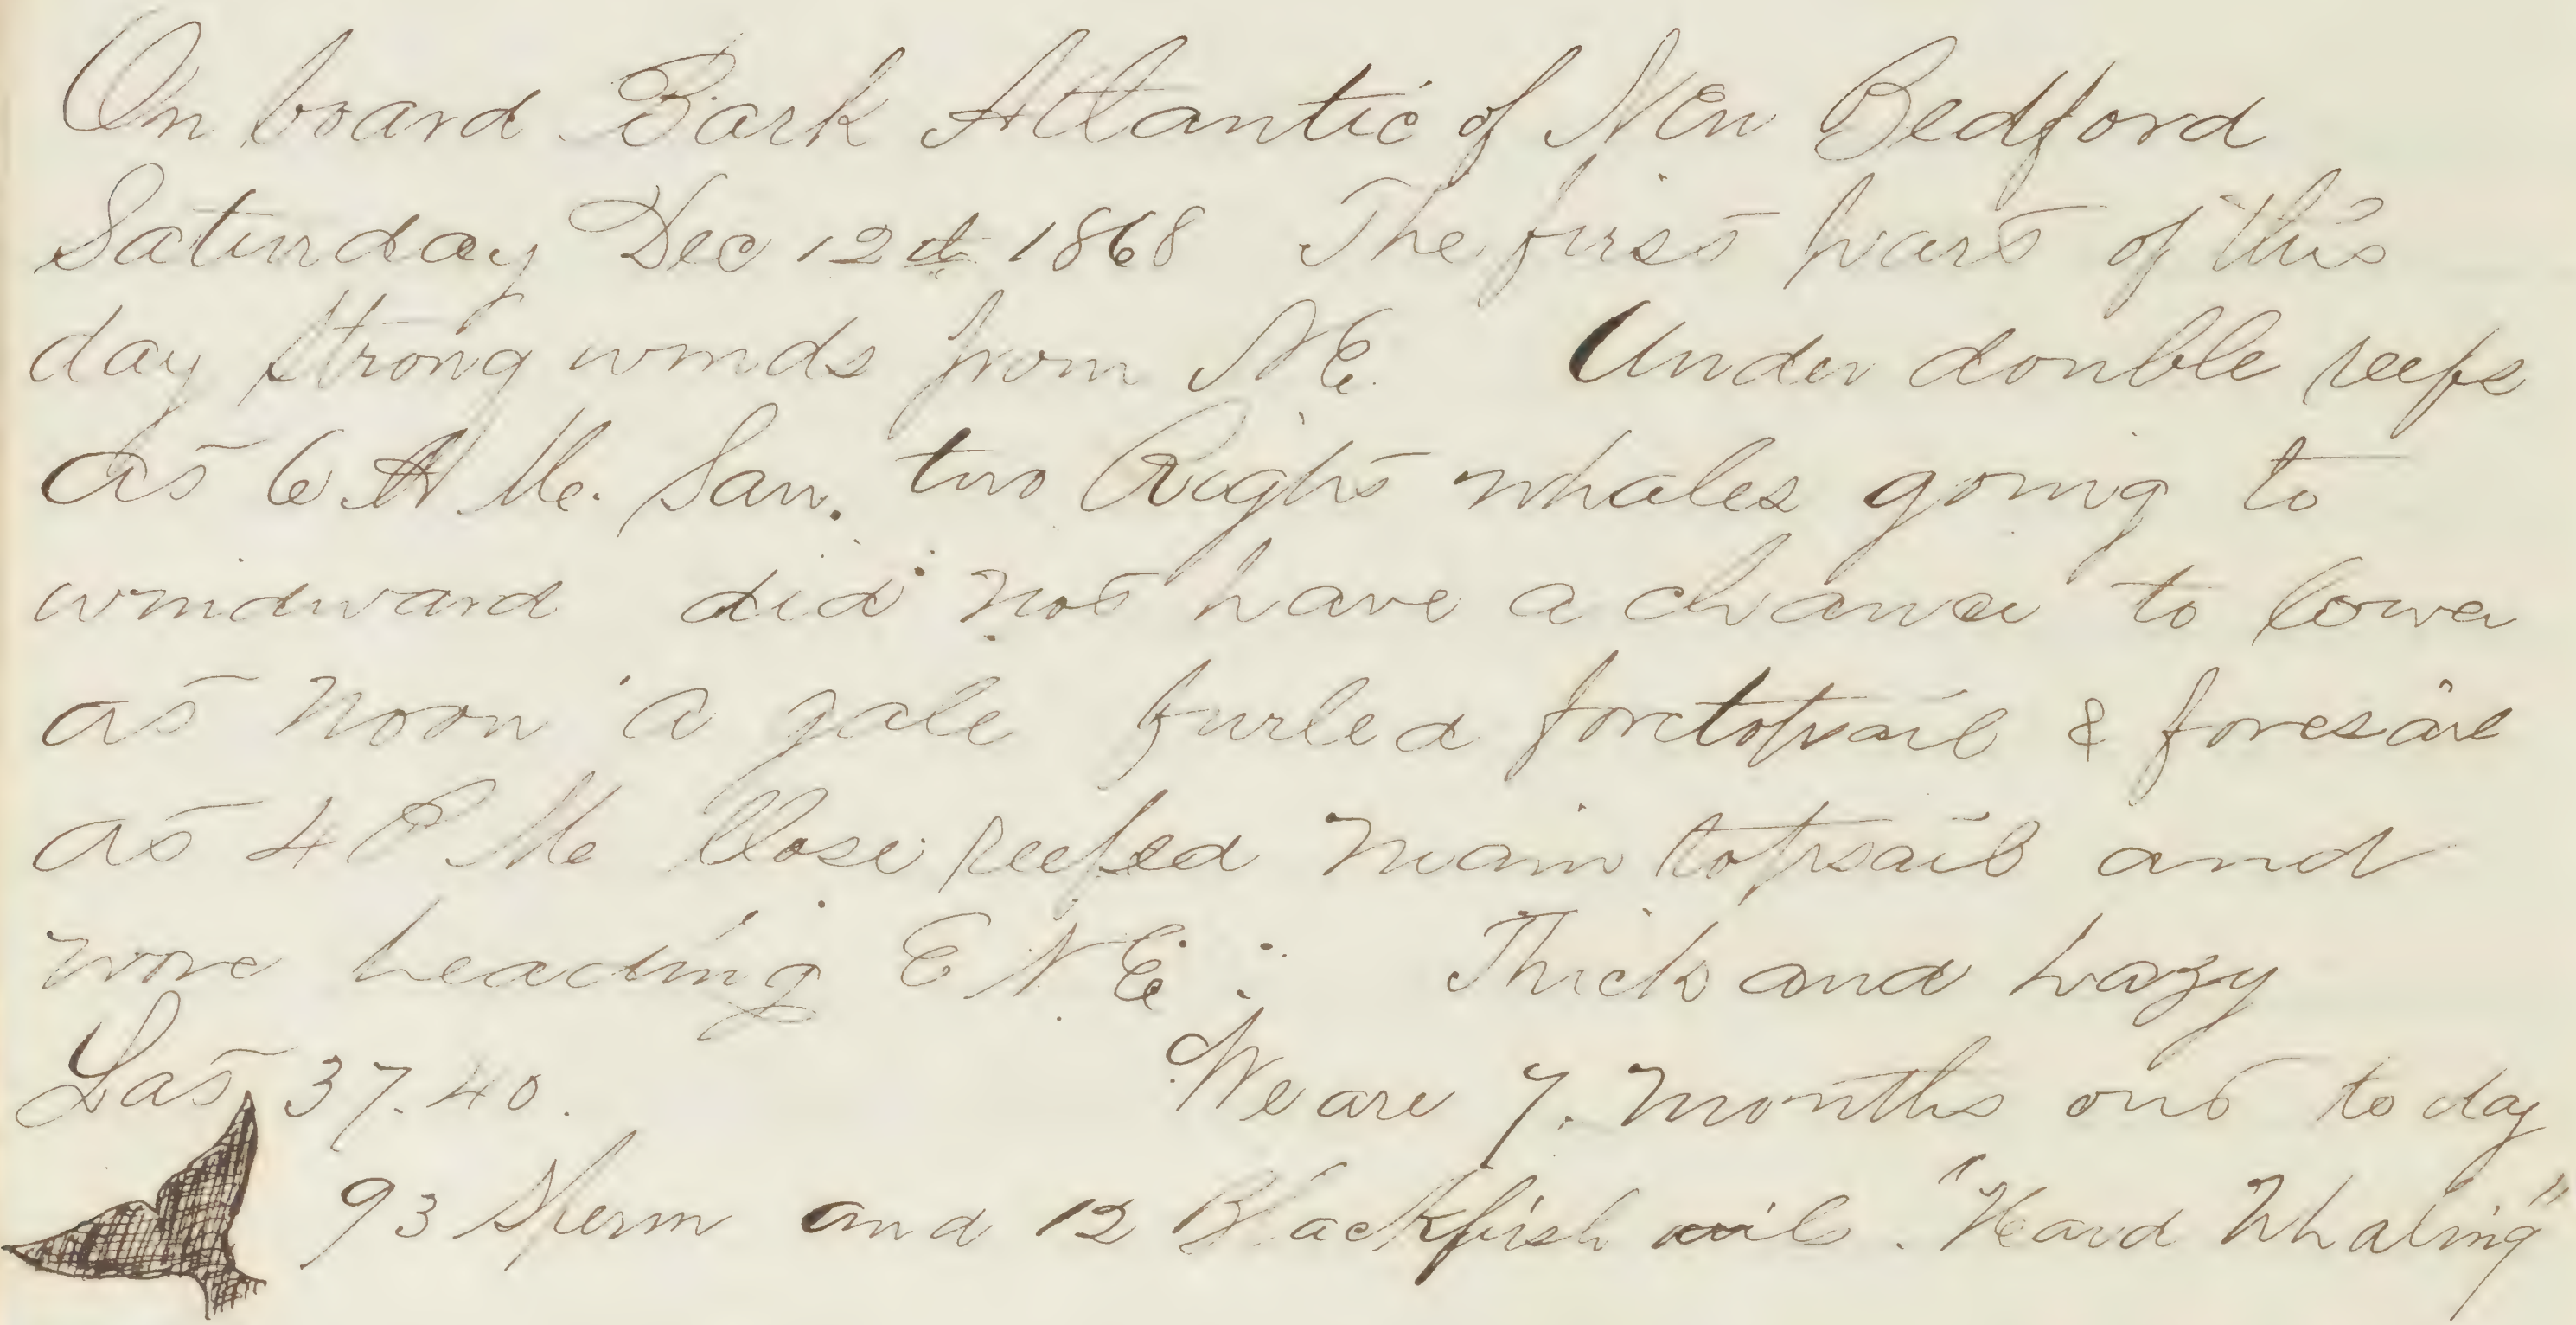 On board Bark Atlantic of New Bedford
Saturday Dec 12th 1868 The first part of this
day strong winds from NE. Under double reefs
at 6 A M. Saw. two Right whales going to
windward did not have a chance to lower
at noon a gale furled foretopsail & foresail
at 4 P M Close reefed main topsail and
wore heading E N E. Thick and hazy
Lat 37.40. We are 7. months out to day
93 Sperm and 12 Blackfish oil. "Hard Whaling"